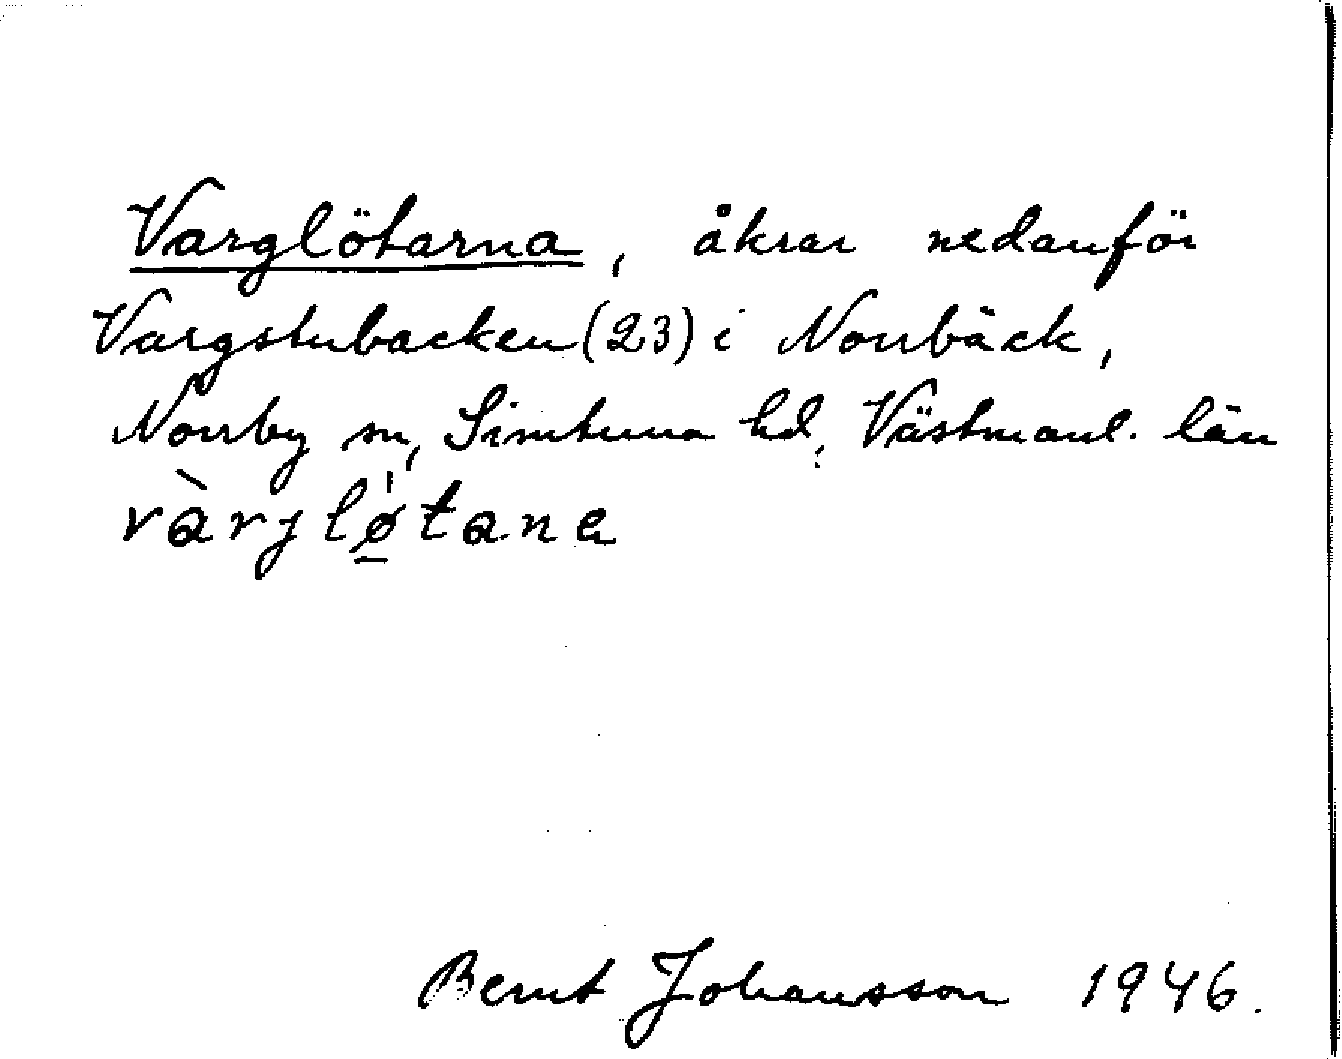 Varglötarna, åkrar nedanför
Vargstubacken (23) i Norrbäck,
Norrby sn, Simtuna hd, Västmanl. län
vàrjlǿ̱tana
Bernt Johansson 1946.